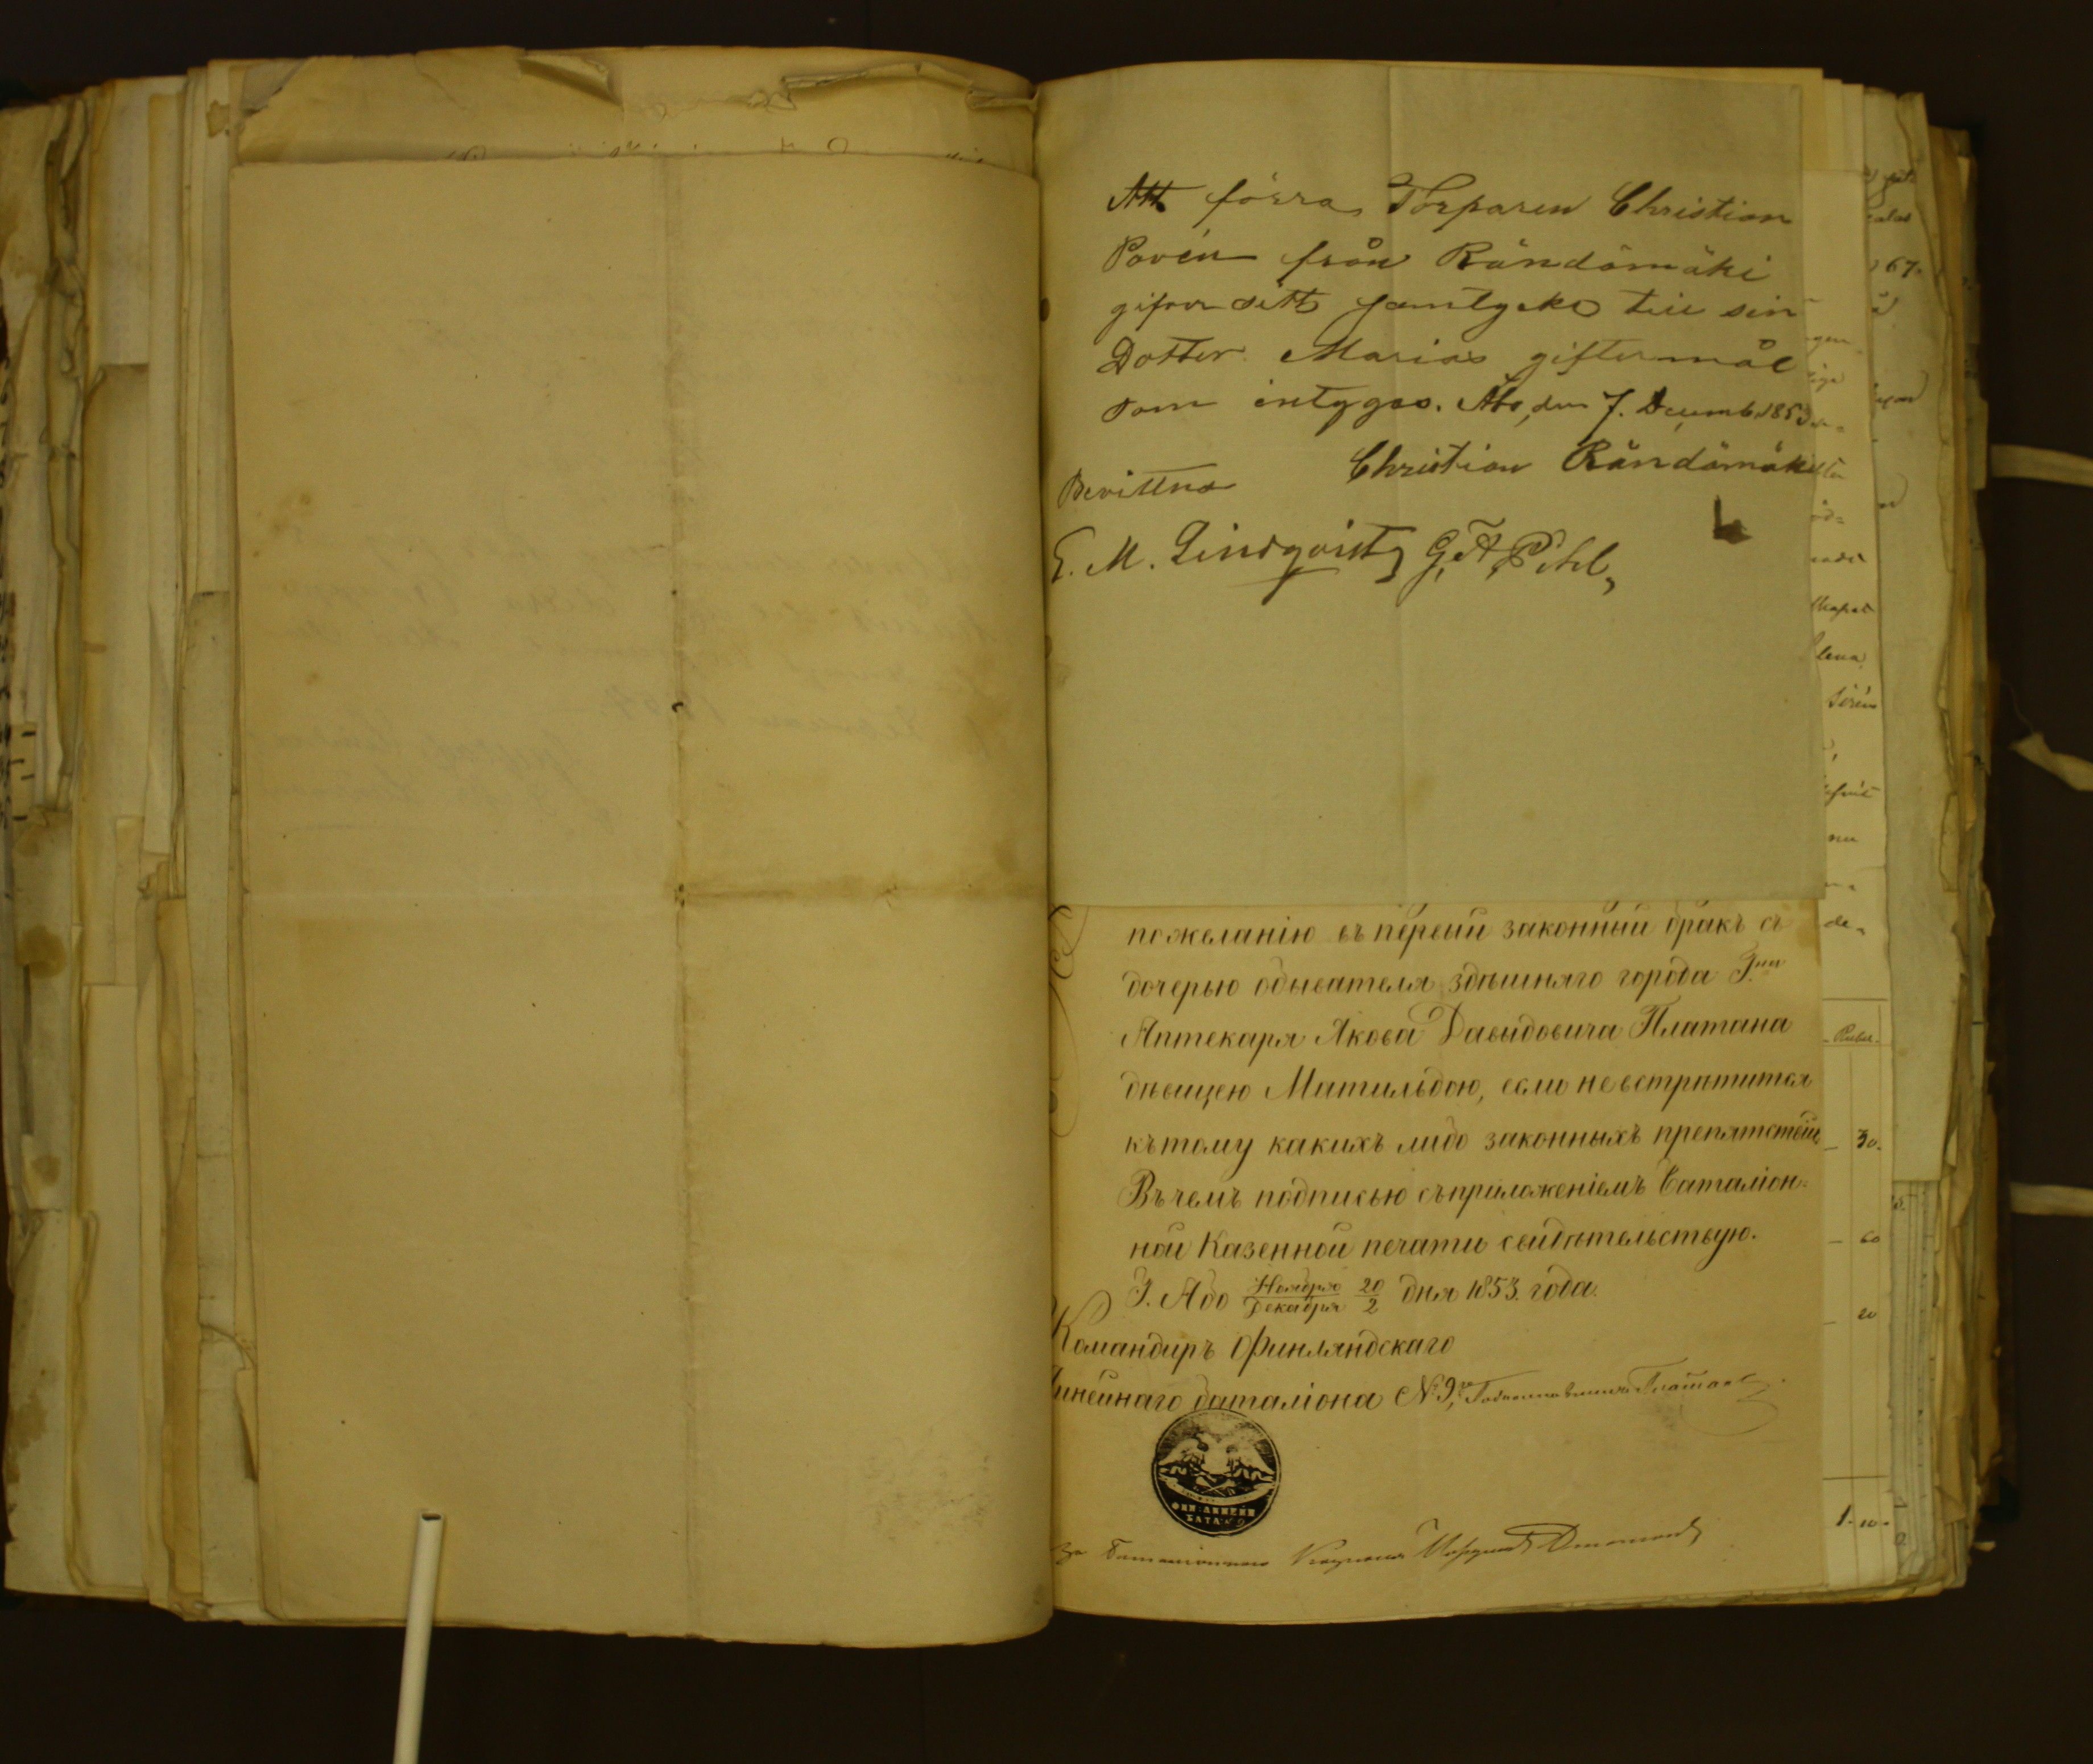 Att förra Torparen Christian
Povén från Rändämäki
gifver sitt samtycke till sin
Dotter Marias giftermål
som intygas. Åbo, den 7. Decemb. 1853
Christian Rändämäki
Bevittna
E. M. Lindqvist G. A. Pihl,
пожеланію въ первый законный бракъ съ
дочерью обывателя здѣшняго города Г.на
Аптекаря Якова Давыдовича Платана
дѣвицею Матильдою, если не встрѣтится
къ тому какихъ либо законныхъ препятствій
Въ чемъ подписью съ приложеніемъ баталіон-
ной Казенной печати свидѣтельствую.
Г. Або Ноября 20 / Декабря 2 дня 1853 года.
Командиръ Финляндскаго
Линейнаго баталіона № 9, Подполковникъ
ФИН: ЛИНЕЙН
БАТА № 9
За Баталіоннаго
67.
lena
de-
30.
60
20
1. 10.